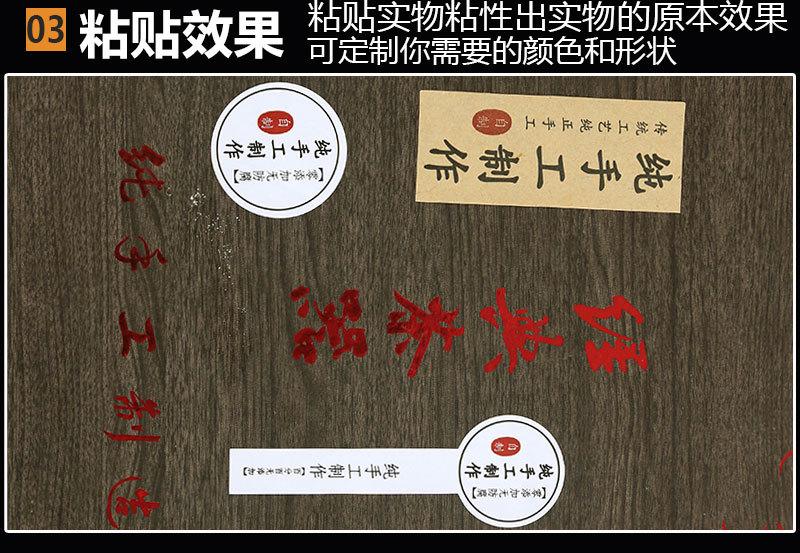 03
粘贴效果
粘贴实物粘性出实物的原本效果
可定制你需要的颜色和形状
自制
纯手工制作
【零添加无防腐】
传统工艺纯正手工
自制
纯手工制作
纯手工制造
自制
纯手工制作
【零添加无防腐】
纯手工制作【百分百无添加】